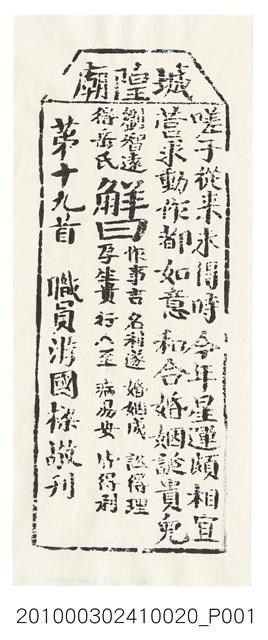 城隍廟
嗟子從來未得時 今年星運頗相宜
營求動作都如意 和合婚姻誕貴兒
劉智遠
得岳氏
解曰
作事吉 名利遂 婚姻成 訟得理
孕生貴 行人至 病易安 得利
第十九首 職員游國標敬刊
201000302410020_P001